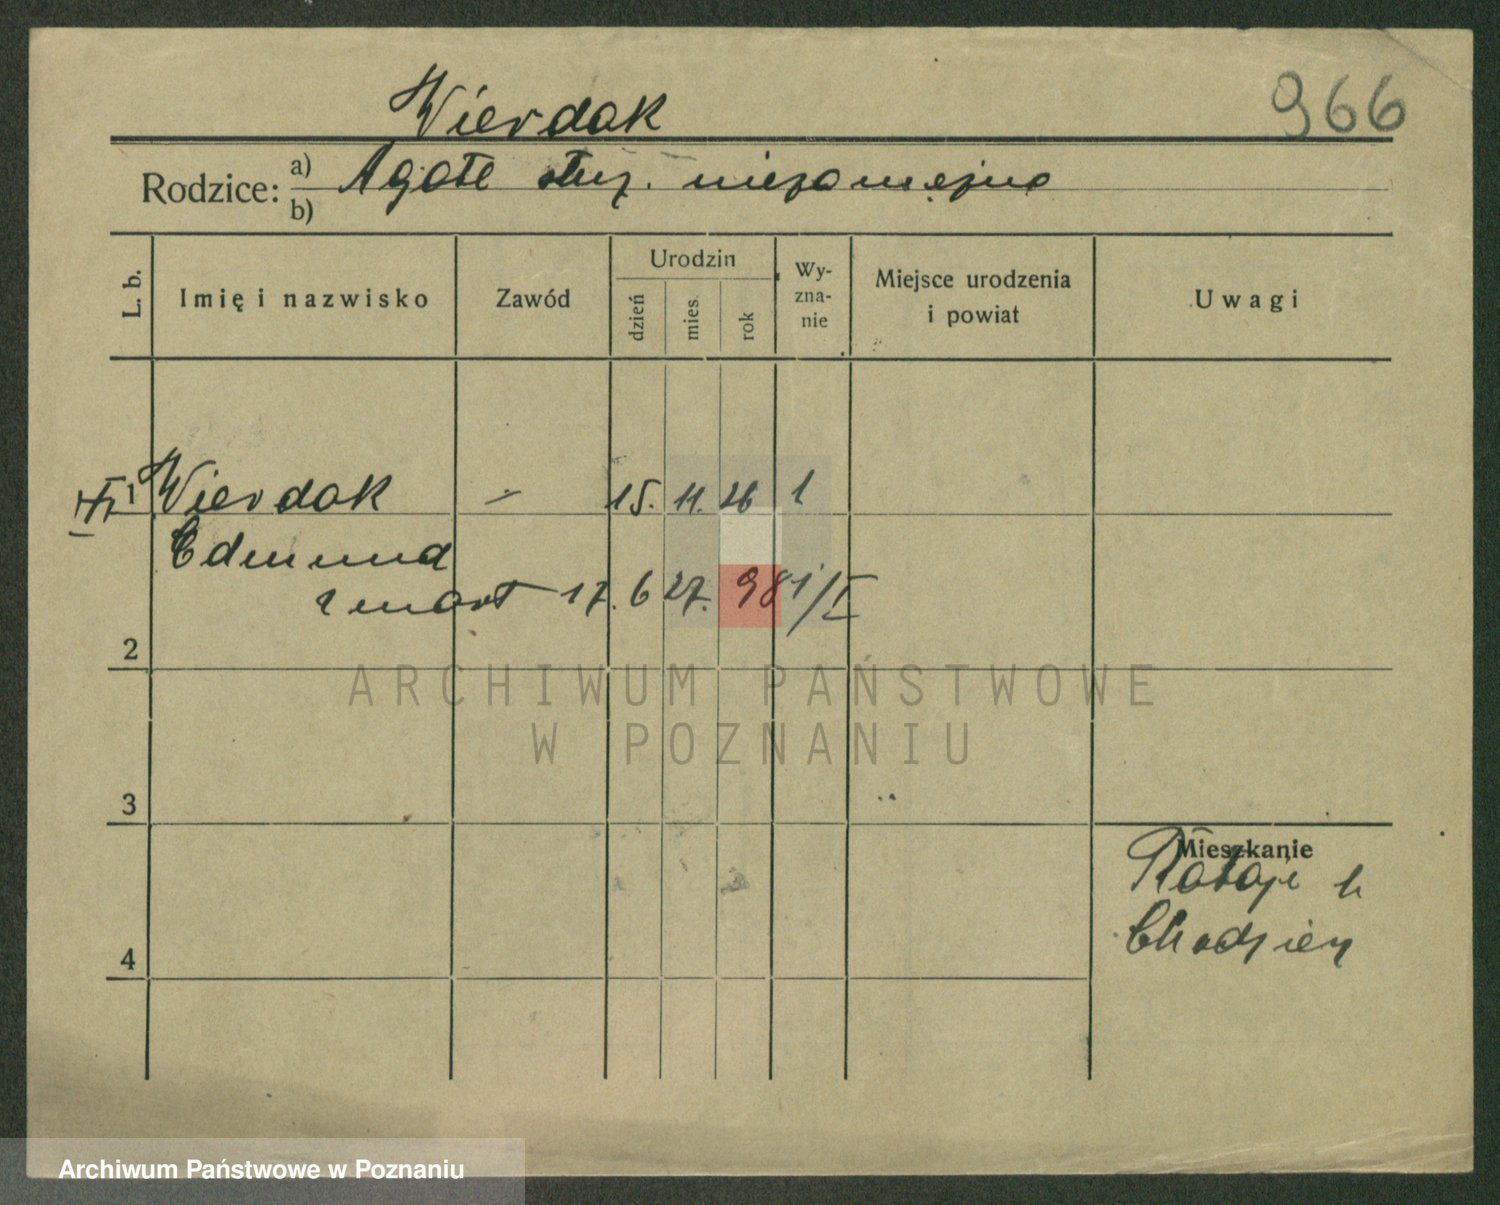 Wierdak 966
Rodzice: a) Agate służ. niezamężna
b)
L. b. Imię i nazwisko Zawód Urodzin dzień mies. rok Wyznanie Miejsce urodzenia i powiat Uwagi
1 Wierdak — 15. 11. 26 1
Edmund
zmarł 17. 6 27. 981/I
2
ARCHIWUM PAŃSTWOWE
W POZNANIU
3
Mieszkanie
Rataje k
Chodzież
4
Archiwum Państwowe w Poznaniu